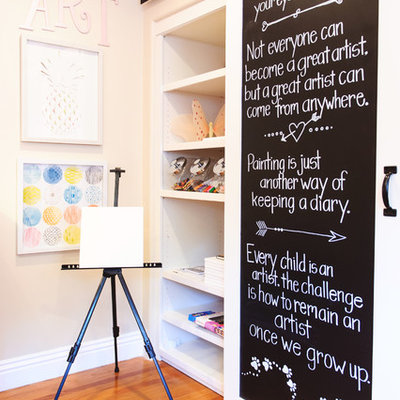 ART
Not everyone can
become a great artist.
but a great artist can
come from anywhere.
Painting is just
another way of
keeping a diary.
Every child is an
artist. the challenge
is how to remain an
artist
once we grow up.